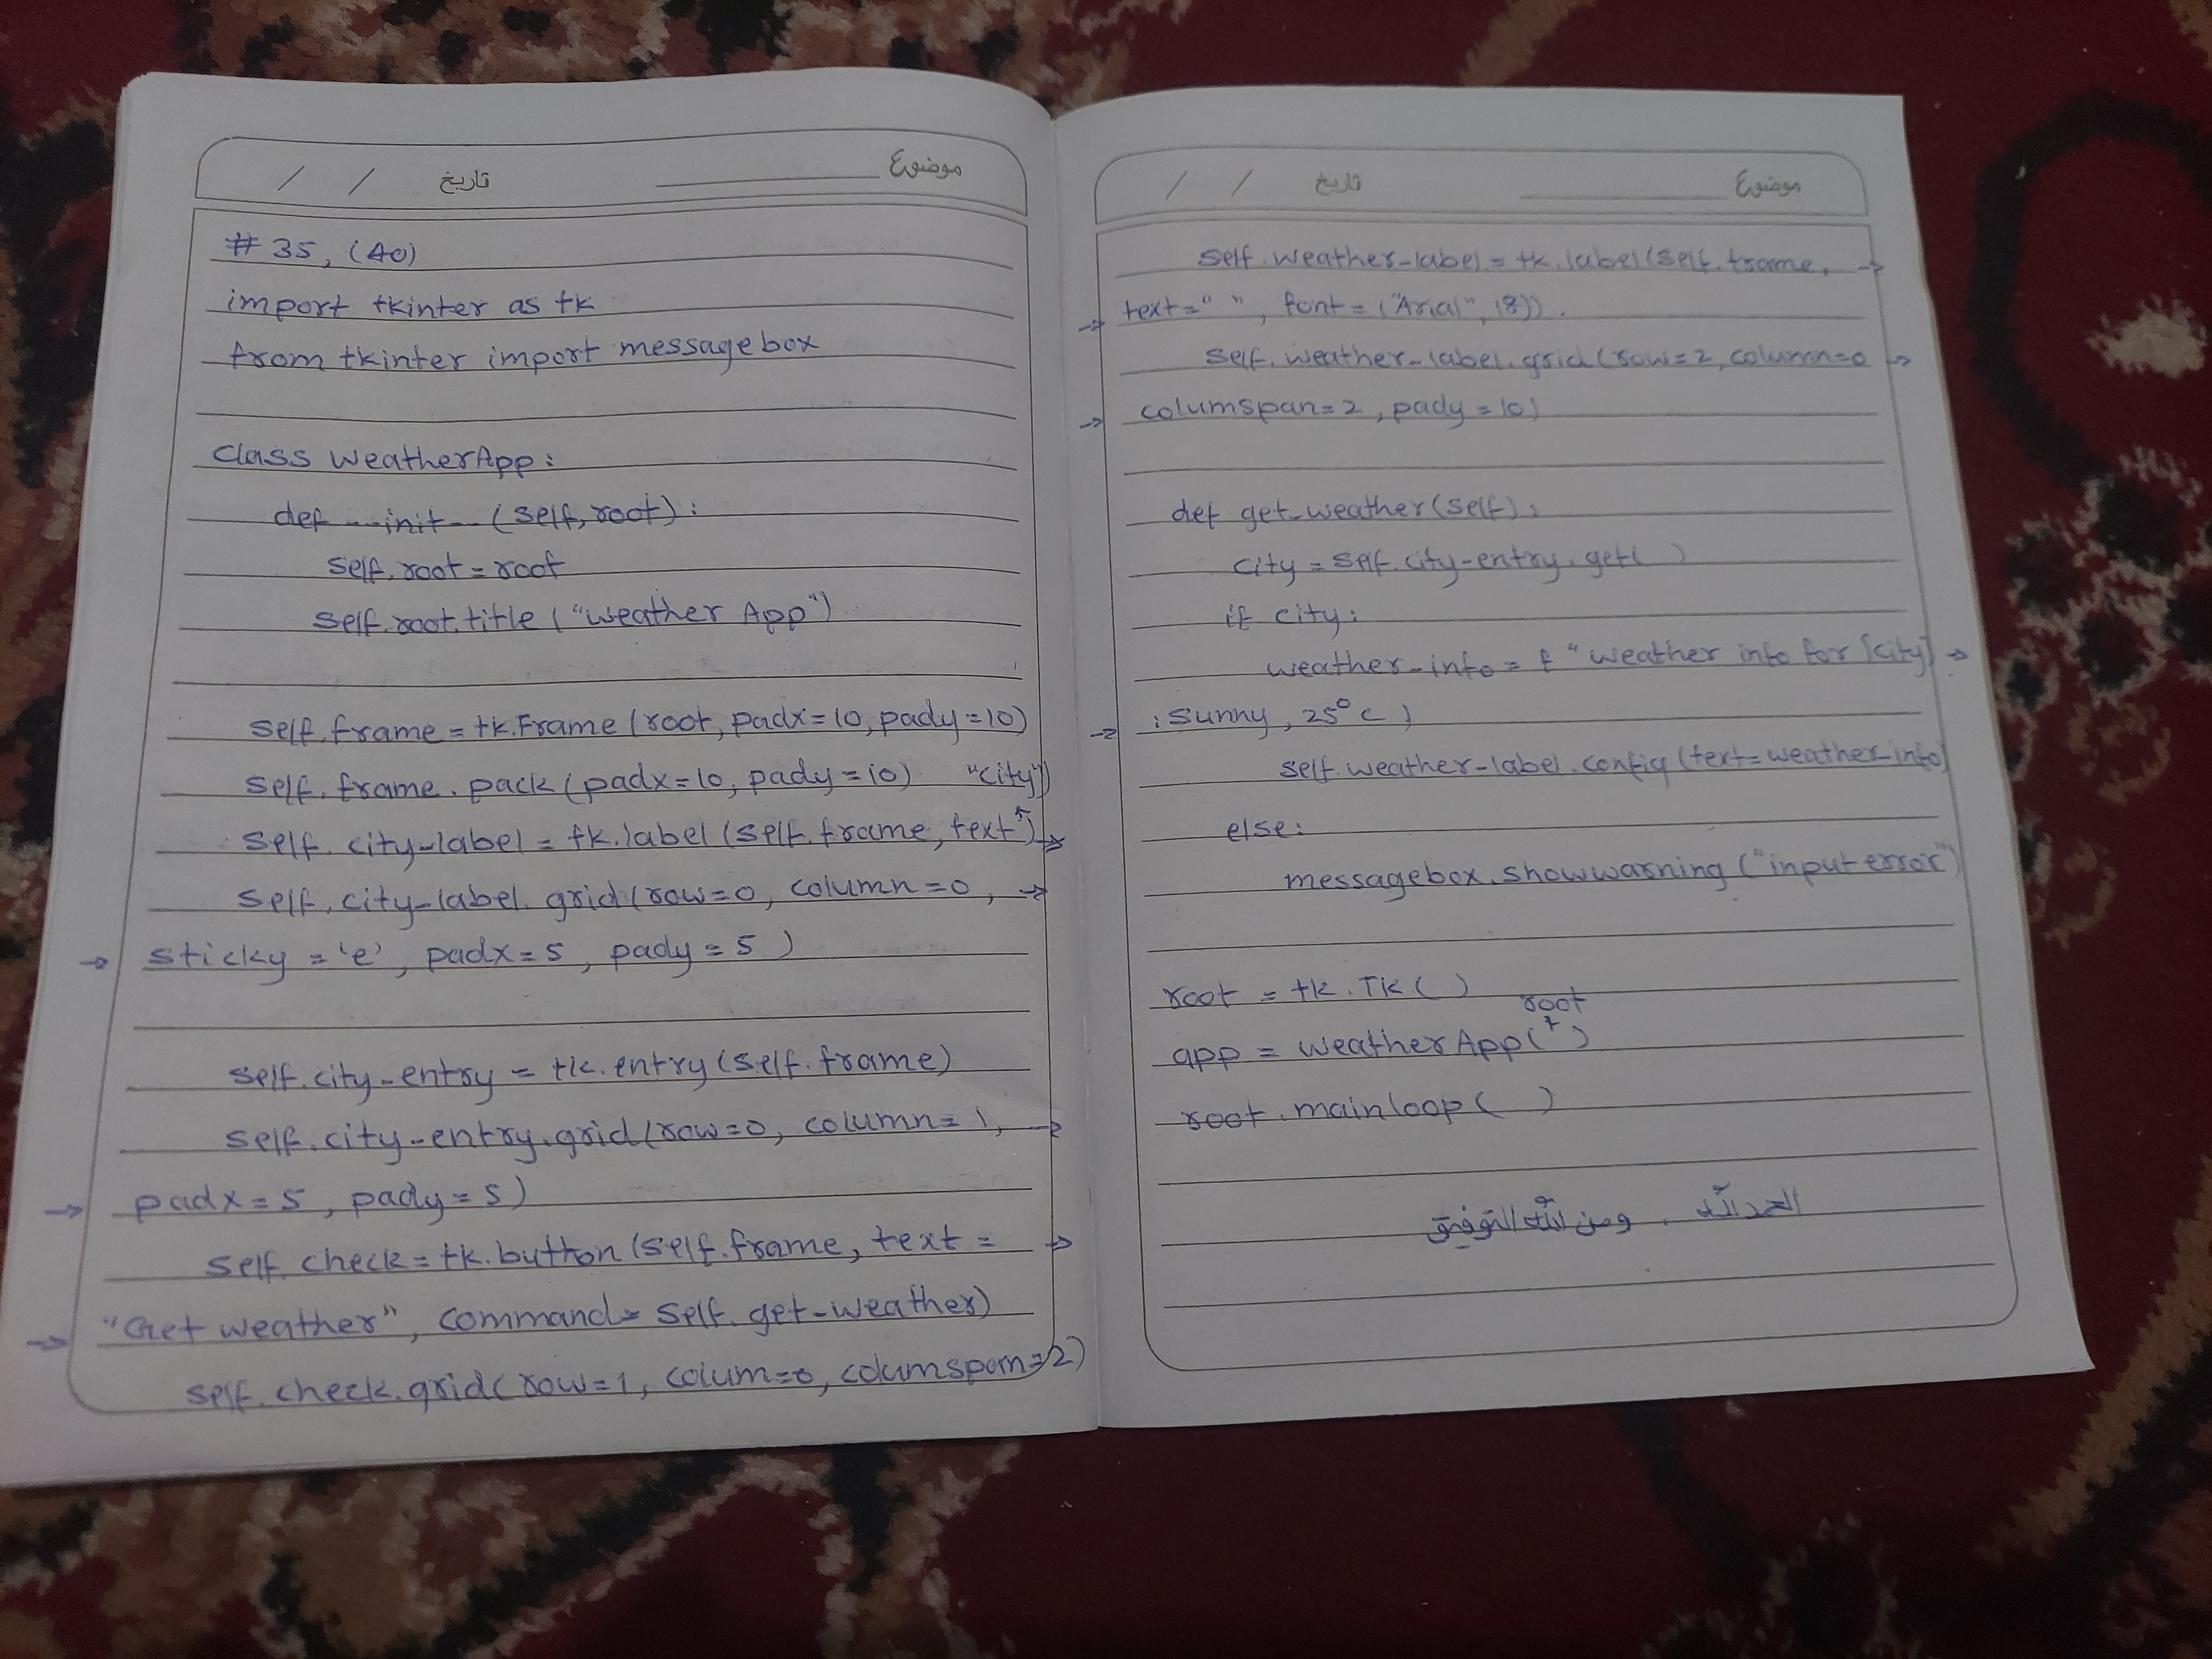 تاریخ / / موضوع
#35, (40)
import tkinter as tk
from tkinter import messagebox
class weatherApp:
def __init__(self, root):
self.root = root
self.root.title("weather App")
self.frame = tk.Frame(root, padx=10, pady=10)
self.frame.pack(padx=10, pady=10) "city")
self.city_label = tk.label(self.frame, text ) →
self.city_label.grid(row=0, column=0, →
→ sticky = 'e', padx=5, pady=5)
self.city_entry = tk.entry(self.frame)
self.city_entry.grid(row=0, column=1, →
→ padx=5, pady=5)
self.check = tk.button(self.frame, text = →
→ "Get weather", command= self.get_weather)
self.check.grid(row=1, colum=0, columspam=2)
تاریخ / / موضوع
self.weather_label = tk.label(self.frame, →
→ text=" ", font=("Arial", 18)).
self.weather_label.grid(row=2, column=0 →
→ columspan=2, pady=10)
def get_weather(self):
city = self.city_entry.get( )
if city:
weather_info = f "weather info for {city} →
→ : Sunny, 25°c)
self.weather_label.config(text=weather_info)
else:
messagebox.showwarning("input error")
root = tk.Tk( )
root
app = weatherApp( )
root.mainloop( )